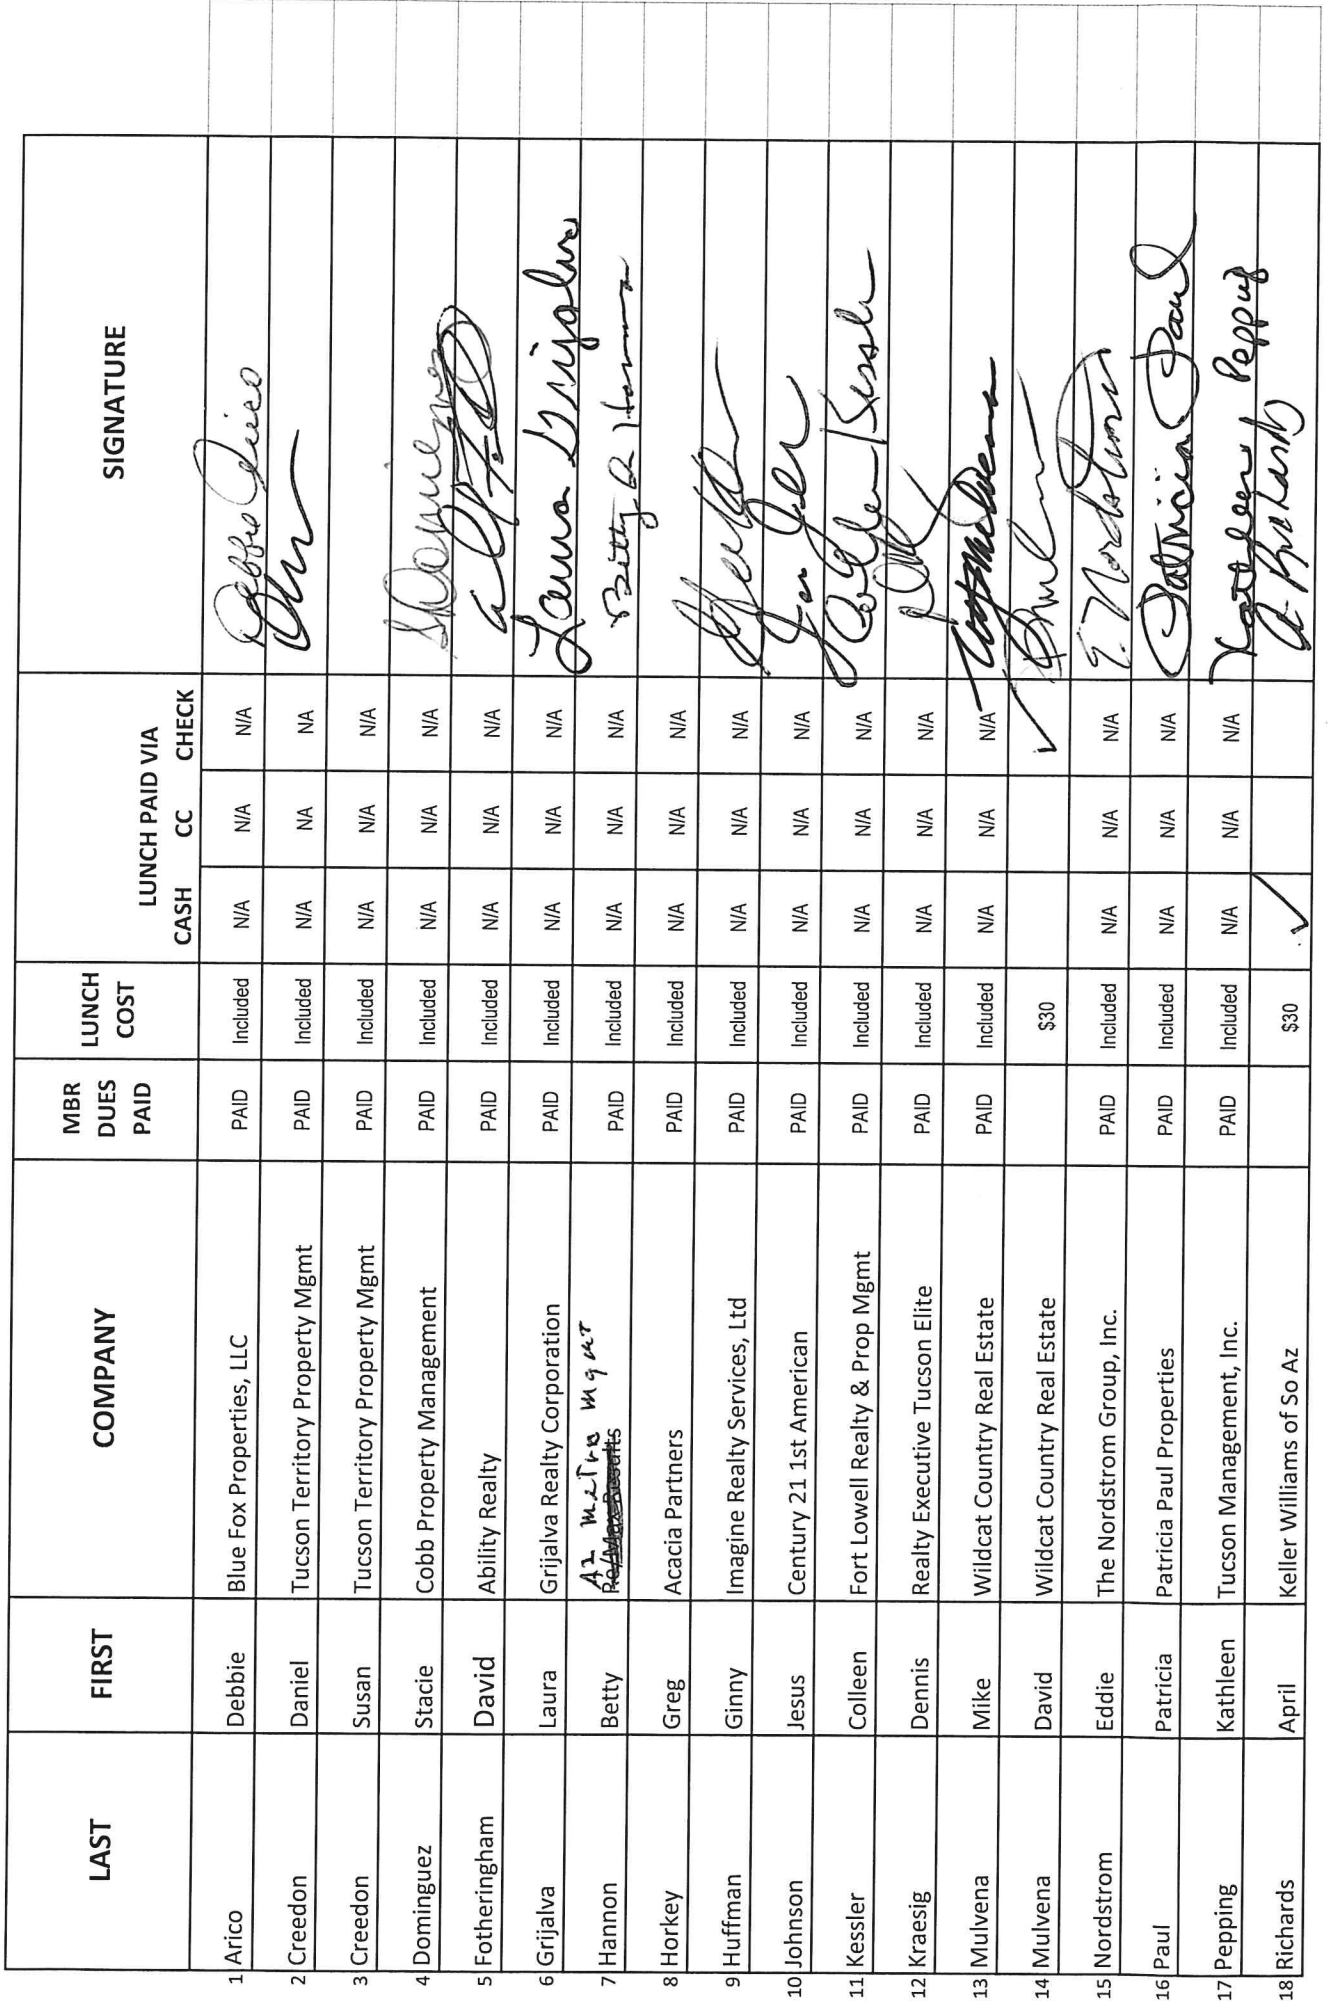 LAST FIRST COMPANY MBR DUES PAID LUNCH COST LUNCH PAID VIA CASH CC CHECK SIGNATURE
1 Arico Debbie Blue Fox Properties, LLC PAID Included N/A N/A N/A Debbie Arico
2 Creedon Daniel Tucson Territory Property Mgmt PAID Included N/A NA NA
3 Creedon Susan Tucson Territory Property Mgmt PAID Included N/A N/A N/A
4 Dominguez Stacie Cobb Property Management PAID Included N/A N/A N/A
5 Fotheringham David Ability Realty PAID Included N/A N/A N/A
6 Grijalva Laura Grijalva Realty Corporation PAID Included N/A N/A N/A Laura Grijalva
7 Hannon Betty Re/Max Results Az Metro Mgmt PAID Included N/A N/A N/A Betty Hannon
8 Horkey Greg Acacia Partners PAID Included N/A N/A N/A
9 Huffman Ginny Imagine Realty Services, Ltd PAID Included N/A N/A N/A
10 Johnson Jesus Century 21 1st American PAID Included N/A N/A N/A
11 Kessler Colleen Fort Lowell Realty & Prop Mgmt PAID Included N/A N/A N/A Colleen Kessler
12 Kraesig Dennis Realty Executive Tucson Elite PAID Included N/A N/A N/A
13 Mulvena Mike Wildcat Country Real Estate PAID Included N/A N/A N/A
14 Mulvena David Wildcat Country Real Estate $30 ✓
15 Nordstrom Eddie The Nordstrom Group, Inc. PAID Included N/A N/A N/A E. Nordstrom
16 Paul Patricia Patricia Paul Properties PAID Included N/A N/A N/A Patricia Paul
17 Pepping Kathleen Tucson Management, Inc. PAID Included N/A N/A N/A Kathleen Pepping
18 Richards April Keller Williams of So Az $30 ✓ A Richards